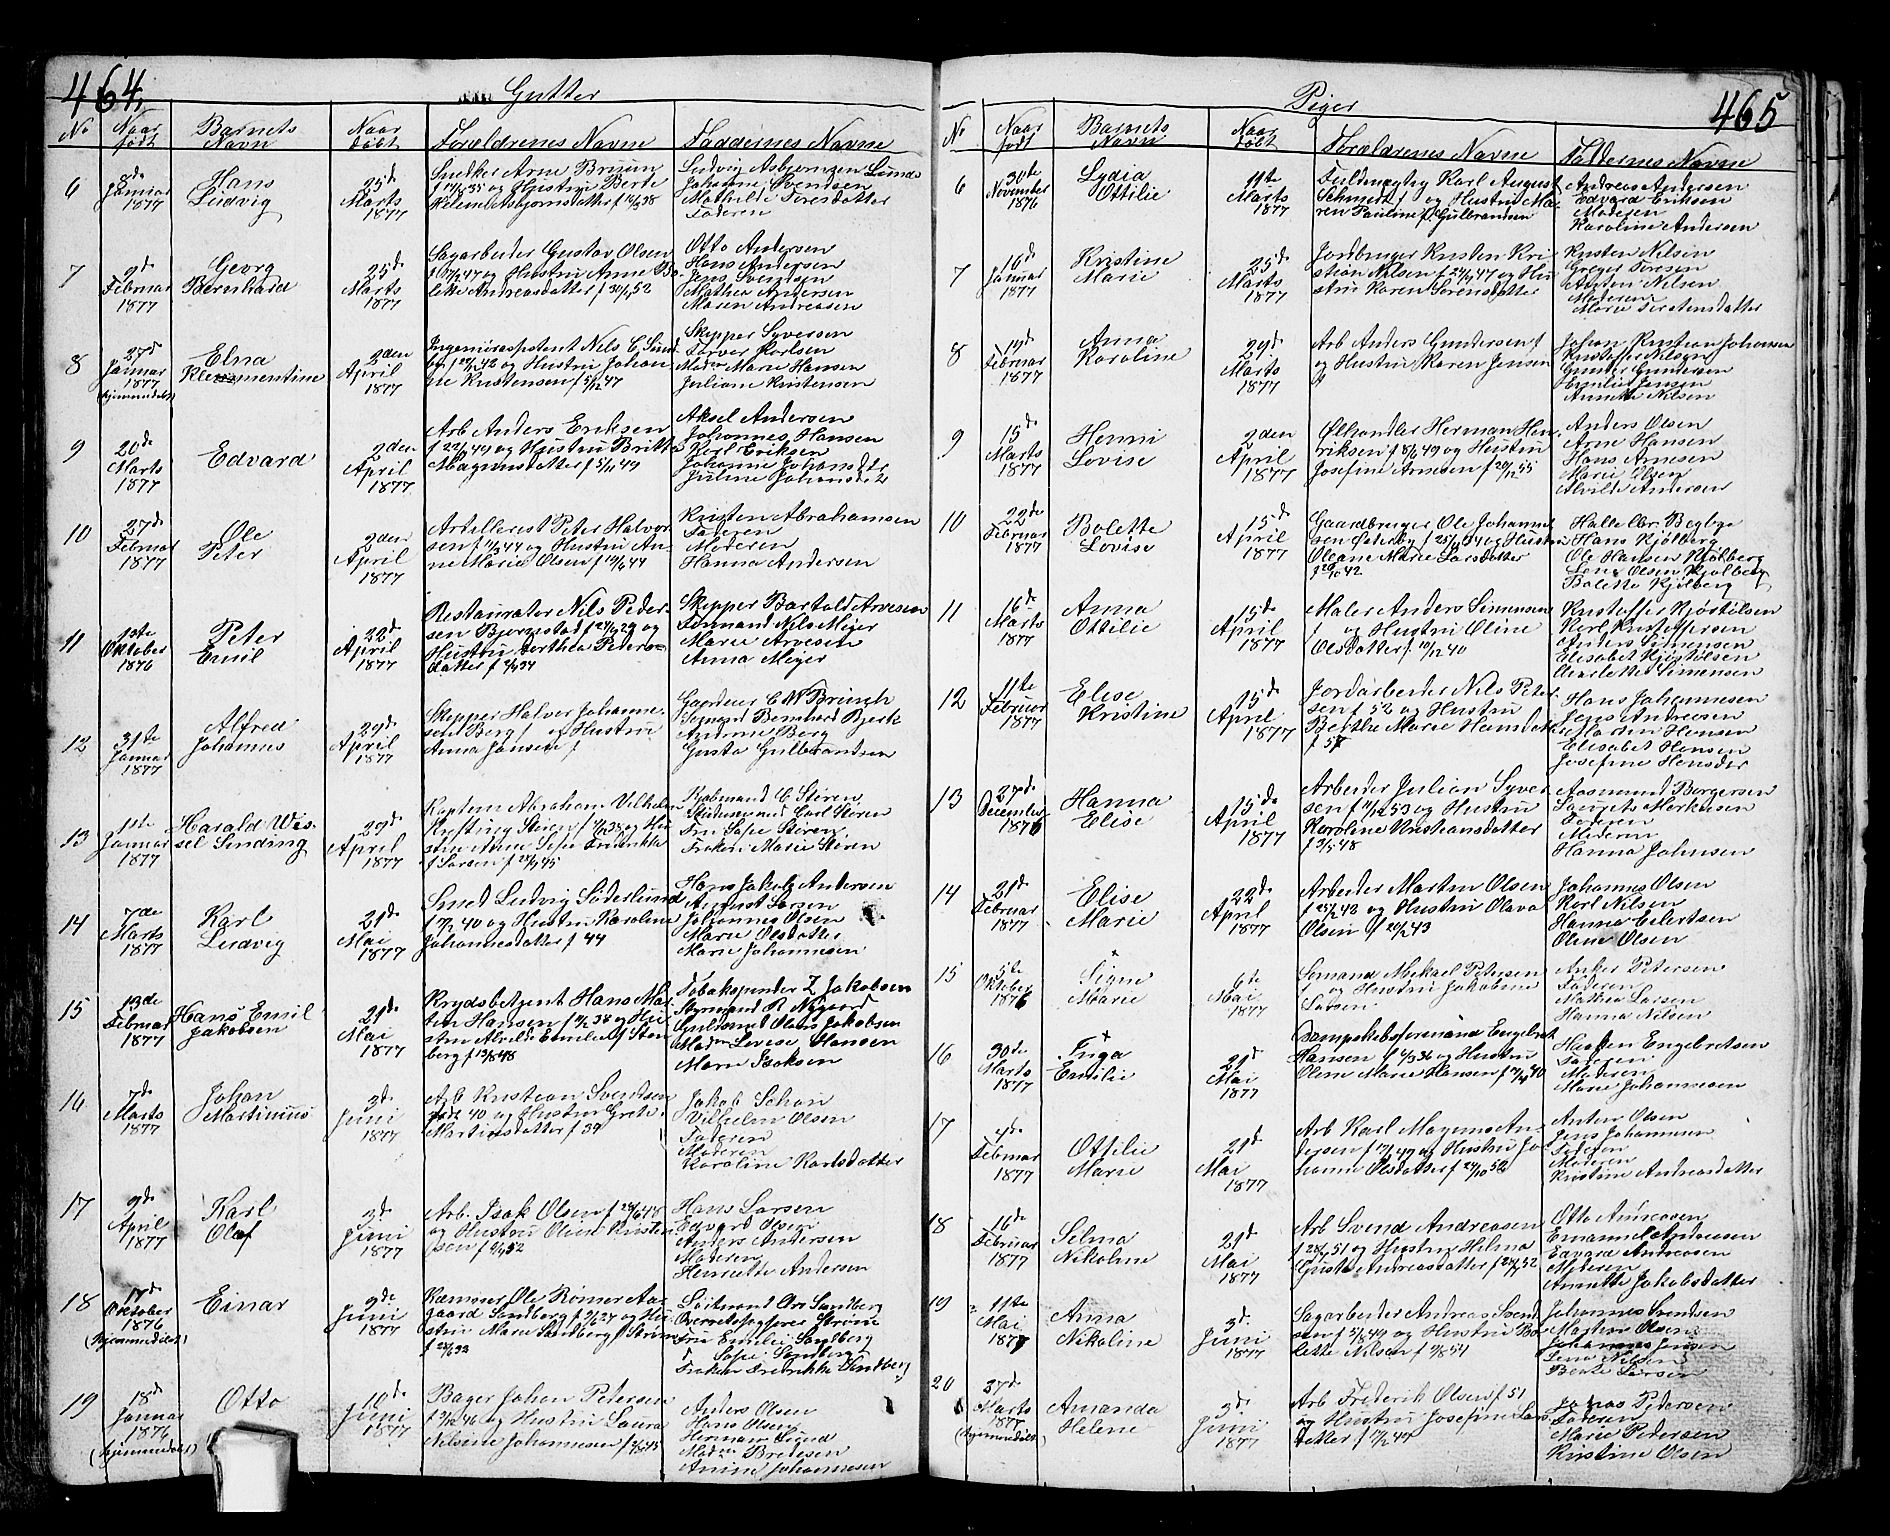 464.
Gutter
No
Naar født
Barnets Navn
Naar døbt
Forældrenes Navne
Faddernes Navne
6
8de Januar 1877
Hans Ludvig
25de Marts 1877
Snedker Arne Bruun
og Hustru Berte
Ludvig Asbjørnsen Lunde
Johastine Svendsen
Mathilde Toresdatter
Faderen
7
9de Februar 1877
Georg Bernhard
25de Marts 1877
Sagarbeider Gustav Olsen
og Hustru Anne Bo-
lette Andreasdatter f 30/1 52
Otto Andersen
Hans Andersen
Jens Svendsen
Mathea Andersen
Maren Andreasen
8
27de Januar 1877
(hjemmedøbt)
Elna Klementine
2den April 1877
Nils C. Sund-
og Hustru Johan-
ne Kristensen f 5/12 47
Skipper Syversen
Torver Karlsen
Madm Marie Hansen
Juliane Kristensen
9
20de Marts 1877
Edvard
2den April 1877
Arb Anders Eriksen
og Hustru Britte
Magnusdatter f 5/11 49
Aksel Andersen
Johannes Hansen
Karl Eriksen
Johanne Johansdtr
Juline Johansdtr
10
27de Februar 1877
Ole Peter
2den April 1877
Artillerist Peter Halvor-
sen f 11/2 44 og Hustru An-
ne Marie Olsen f 10/6 44
Kristen Abrahamsen
Faderen
Moderen
Hanna Andersen
11
1ste Oktober 1876
Peter Emil
22de April 1877
Restauratør Nils Peder-
sen Bjørnstad og
Hustru Dorthea Peders-
datter f 4/9 34
Skipper Bartold Arvesen
Sømand Nils Meyer
Marie Arvesen
Anna Meyer
12
31te Januar 1877
Alfred Johannes
29de April 1877
Skipper Halvor Johanne-
sen Berg f og Hustru
Anna Jansen f
Gaardeier C M Brunch
Sømand Bernhard Bjerk
Andrine Berg
Gusta Gulbrandsen
13
1ste Januar 1877
Harald Wis-
sel Sinding
29de April 1877
Kaptein Abraham Vilhelm
og Hu-
stru Anne Sofie Fredrikke
f Larsen f 24/1 45
Kjøbmand C Støren
Studiosus med Carl Støren
Fru Sofie Støren
Frøken Marie Støren
14
7de Marts 1877
Karl Ludvig
21de Mai 1877
Smed Ludvig Søderlund
f 17/2 40 og Hustru Karoline
Johannesdatter f 44
Hans Jakob Andersen
August Larsen
Johannes Olsen
Marie Olsdatter
Marie Johannesen
15
13de Februar 1877
Hans Emil Jakobsen
21de Mai 1877
Krydsbetjent Hans Mar-
tin Hansen f 11/2 38 og Hu-
stru Alvilde Emilie f Sten-
berg f 13/8 48
Tobakspinder Z Jakobsen
Styrmand R Nygaard
Guldsmed Olaus Jakobsen
Madm Lovise Hansen
Marie Isaksen
16
7de Marts 1877
Johan Martinius
3de Juni 1877
Arb Kristian Svendsen
født 40 og Hustru Grete
Martinsdatter f 39
Jakob Schou
Vilhelm Olsen
Faderen
Moderen
Karoline Karlsdatter
17
9de April 1877
Karl Olaf
3de Juni 1877
Arb. Isak Olsen f 24/6 48
og Hustru Oline Kristen-
sen f 9/9 52
Hans Larsen
Edvard Olsen
Anders Andersen
Moderen
Henriette Andersen
18
17de Oktober 1876
(hjemmedøbt)
Einar
9de Juni 1877
Kæmner Ole Rømer Aa-
gaard Sandberg f 5/6 27 og Hu-
stru Marie Sandberg f Strøm
Løitnant Ove Sandberg
Overretssagfører Strøm
Fru Emilie Sandberg
F. Sofie Sandberg
Frøken Fredrikke Sandberg
19
18de Januar 1876
(hjemmedøbt)
Otto
10de Juni 1877
Bager Johan Petersen
og Hustru Laura
Nilsine Johannesen
Anders Olsen
Hans Olsen
Herman Lund
Madm Bredesen
Anine Johannesen
465
Piger
No
Naar født
Barnets Navn
Naar døbt
Forældrenes Navne
Faddernes Navne
6
30te November 1876
Lydia Ottilie
11te Marts 1877
Fuldmægtig Karl August
Schmidt f og Hustru Ma-
ren Pauline f. Gulbrandsen
Andreas Andersen
Edvard Eriksen
Moderen
Karoline Andersen
7
16de Januar 1877
Kristine Marie
25de Marts 1877
Jordbruger Kristen Kri-
stian Nilsen f 24/9 47 og Hu-
stru Karen Sørensdatter
Kristen Nilsen
Greger Toresen
Anton Nilsen
Moderen
8
19de Februar 1877
Anna Karoline
29de Marts 1877
Arb Anders Gundersen f
og Hustru Karen Jensen
f
Johan Kristian Johansen
Kristoffer Nilsen
Gunder Gundersen
Emilie Jensen
Annette Nilsen
9
15de Marts 1877
Hermi Lovise
2den April 1877
Ølhandler Herman Hen-
riksen f 8/6 49 og Hustru
Josefine Arnesen f 20/12 55
Anders Olsen
Arne Hansen
Hans Arnesen
Marie Olsen
Alvilde Andersen
10
22de Februar 1877
Bolette Lovise
15de April 1877
Gaardbruger Ole Johanne-
sen Østerby og Hustru
Oleane Marie Larsdatter
f 20/10 42
Halle Begbye
Hans Kjølberg
Ole Hansen Kjølberg
Lene Olsen Kjølberg
Bolette Kjølberg
11
16de Marts 1877
Anna Ottilie
15de April 1877
Maler Anders Simensen
f og Hustru Oline
Olsdatter f 10/12 40
Kristoffer Kjøstolsen
Karl Kristoffersen
Anders Simensen
Elisabet Kjøstolsen
Charlotte Simensen
12
11te Februar 1877
Elise Kristine
15de April 1877
Jordarbeider Nils Peter-
sen f 52 og Hustru
Berthe Marie Hansdatter
f 57
Hans Johannesen
Jens Andresen
Martin Hansen
Elisabet Hansen
Josefine Hansdtr
13
27de December 1876
Hanna Elise
15de April 1877
Arbeider Julian Syver-
sen f 11/12 53 og Hustru
Karoline Kristiansdatter
f 3/5 48
Aasmund Børgersen
Laurets Markusen
Faderen
Moderen
Hanna Johnsen
14
21de Februar 1877
Elise Marie
22de April 1877
Arbeider Martin Olsen
f 25/2 48 og Hustru Olava
Olsen f 20/2 43
Johannes Olsen
Karl Nilsen
Hanna Eilertsen
Oline Olsen
15
5te Oktober 1876
Signe Marie
6te Mai 1877
Sømand Mikael Petersen
f og Hustru Jakobine
Larsen
Anker Petersen
Faderen
Mathea Larsen
Hanna Nilsen
16
30te Marts 1877
Inga Emilie
21de Mai 1877
Dampskibsfører Engebret
Hansen f 4/9 36 og Hustru
Oline Marie Hansen
Kristen Engebretsen
Faderen
Moderen
Marie Johannesen
17
4de Februar 1877
Ottilie Marie
21de Mai 1877
Arb Karl Magnus An-
dersen f 17/9 49 og Hustru Jo-
hanne Olsdatter f 24/10 52
Anton Olsen
Jens Johannesen
Faderen
Moderen
Kristine Andreasdatter
18
16de Februar 1877
Selma Nikoline
21de Mai 1877
Arb Svend Andreasen
og Hustru Helma
Gusta Andreasdatter
Otto Andreasen
Emanuel Andreasen
Edvard Andreasen
Moderen
Annette Jakobsdatter
19
11te Mai 1877
Anna Nikoline
3de Juni 1877
Sagarbeider Andreas Svend-
sen f 5/8 49 og Hustru Bo-
lette Nilsen f 9/8 54
Johannes Svendsen
Martin Olsen
Johannes Jensen
Lena Nilsen
Berte Larsen
20
27de Marts 1877
(hjemmedøbt)
Amanda Helene
3de Juni 1877
Arb Frederik Olsen f 51
og Hustru Josefine Lars-
datter f 11/2 47
Johas Pedersen
Faderen
Marie Pedersen
Kristine Olsen